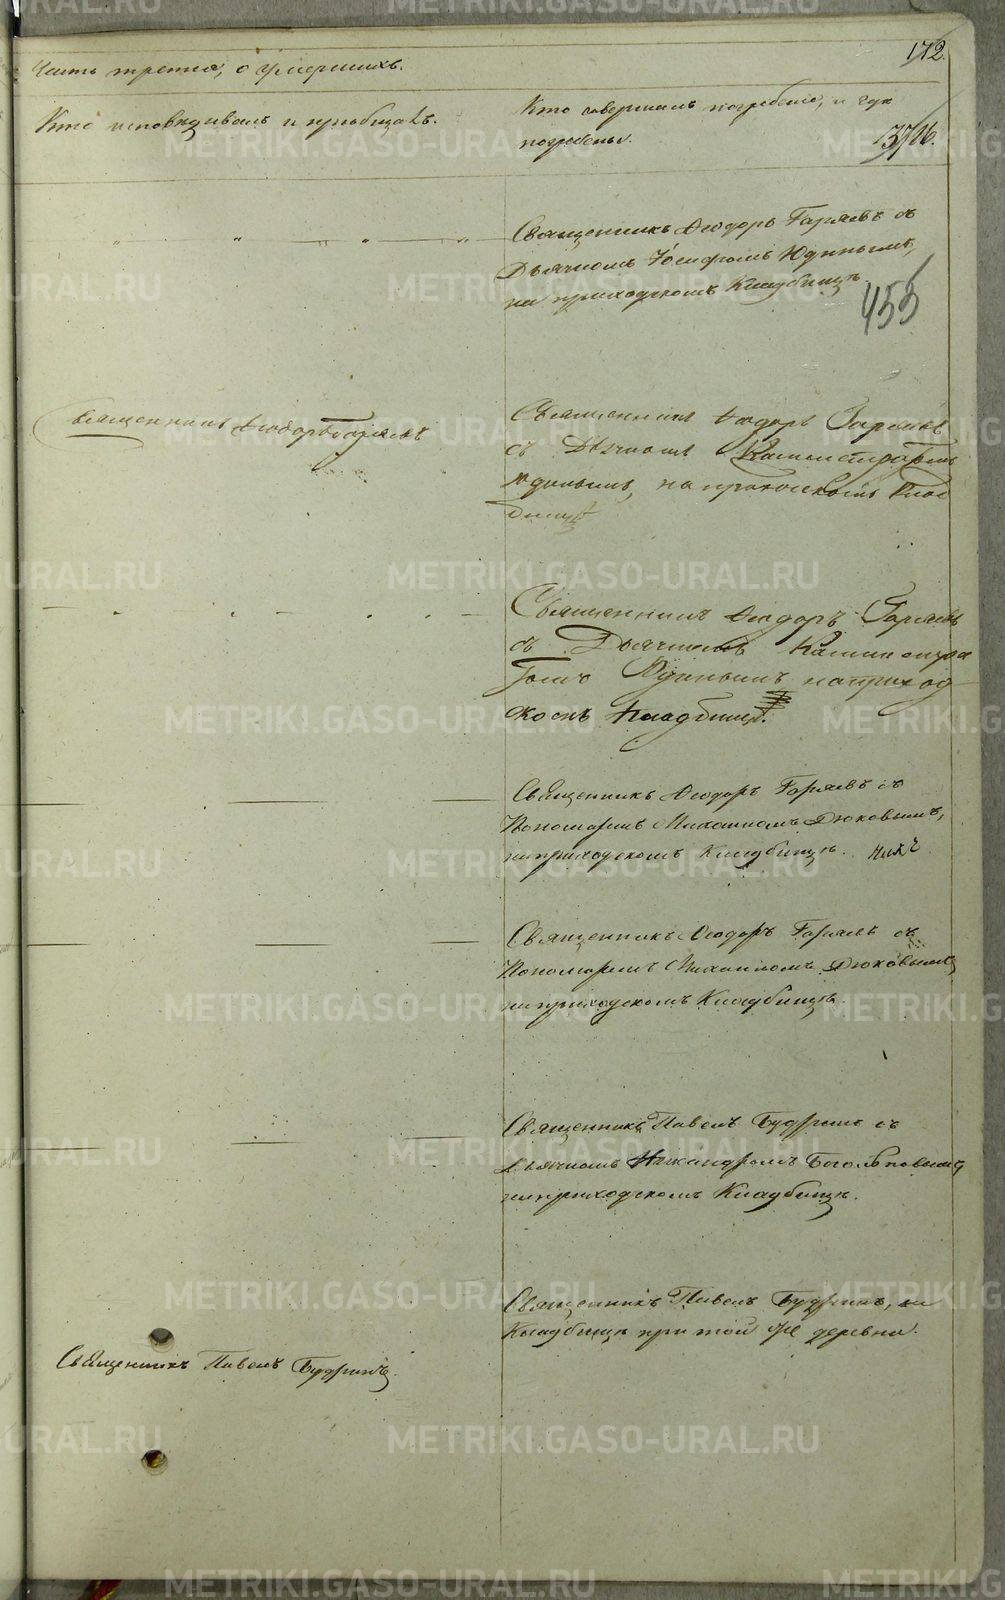 172.
Часть третья, о умершихъ.
Кто исповѣдывалъ и пріобщалъ.
Кто совершалъ погребеніе, и гдѣ
погребены.
Священникъ Ѳеодоръ Гаряевъ съ
Дьячкомъ Іосифомъ Юдинымъ,
на приходскомъ Кладбищѣ.
455
Священникъ Ѳеодоръ Гаряевъ
Священникъ Ѳеодоръ Гаряевъ
съ Дьячкомъ Каллистратомъ
Юдинымъ, на приходскомъ Клад
бищѣ
Священникъ Ѳеодоръ Гаряевъ
съ Дьячкомъ Каллистра
томъ Юдинымъ на приход
скомъ Кладбищѣ.
Священникъ Ѳеодоръ Гаряевъ съ
Пономаремъ Михаиломъ Дюковымъ,
на приходскомъ Кладбищѣ.
Священникъ Ѳеодоръ Гаряевъ съ
Пономаремъ Михаиломъ Дюковымъ
на приходскомъ Кладбищѣ.
Священникъ Павелъ Будринъ съ
Дьячкомъ Никандромъ Боголѣповымъ,
на приходскомъ Кладбищѣ.
Священникъ Павелъ Будринъ, на
Кладбищѣ при той же деревни.
Священникъ Павелъ Будринъ.
METRIKI.GASO-URAL.RU